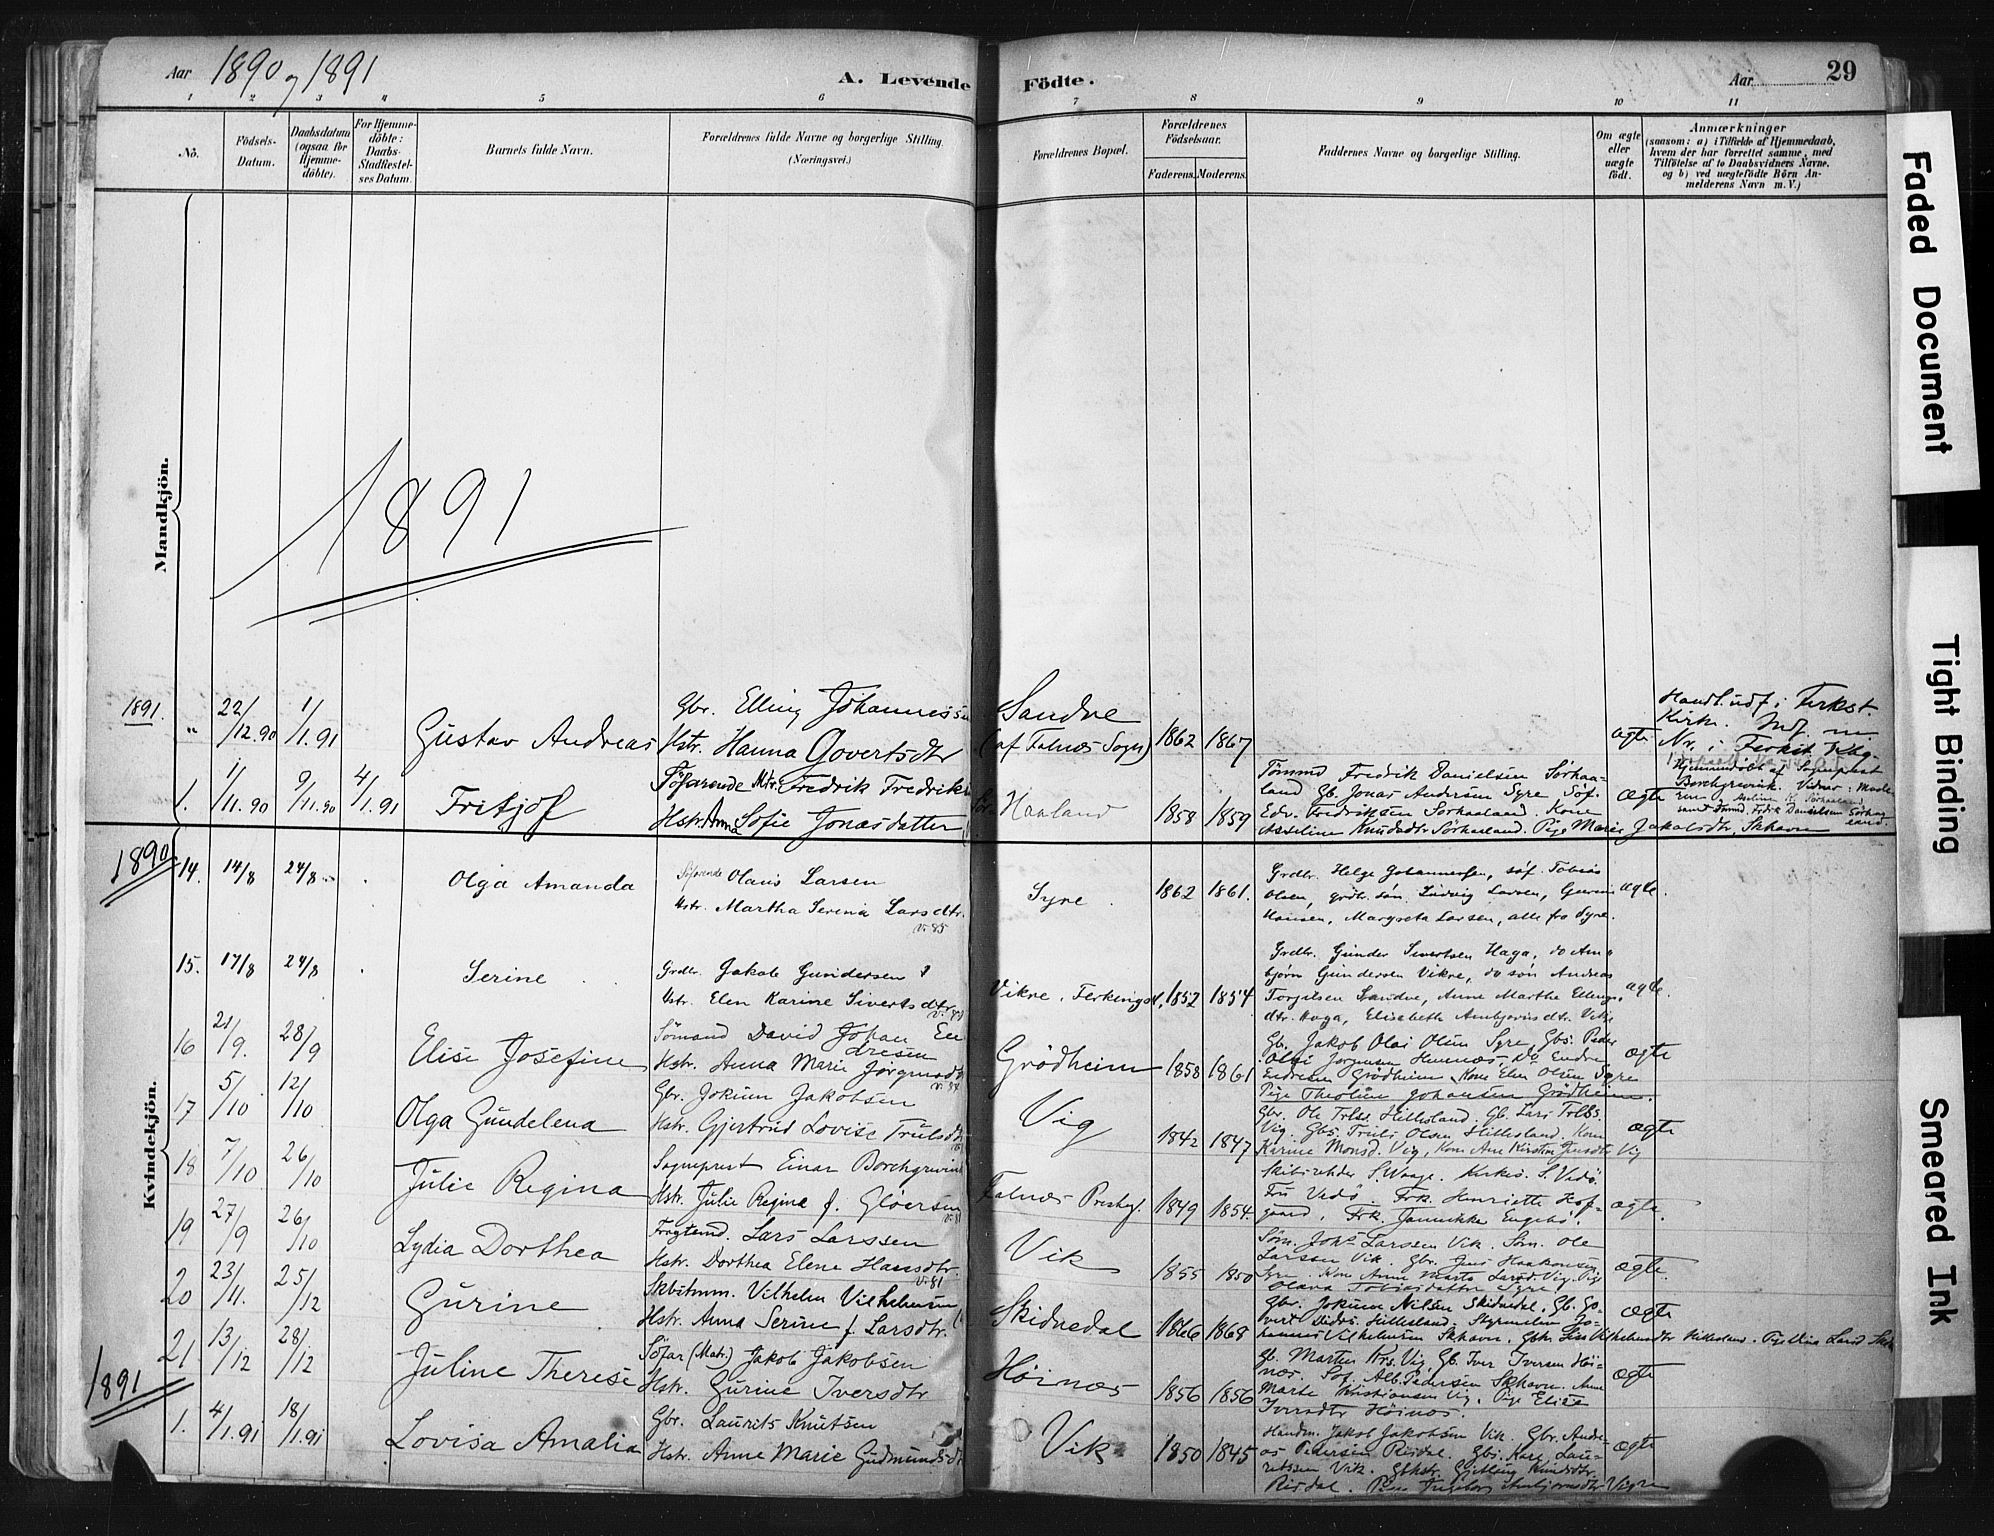 Aar 1890 og 1891
A. Levende Födte.
Aar 29
1 2 3 4 5 6 7 8 9 10 11
No.
Födsels-
Datum.
Daabsdatum
(ogsaa for
Hjemme-
döbte).
For Hjemme-
döbte:
Daabs-
Stadfæstel-
ses Datum.
Barnets fulde Navn.
Forældrenes fulde Navne og borgerlige Stilling.
(Næringsvei.)
Forældrenes Bopæl.
Forældrenes
Födselsaar.
Faderens. Moderens.
Faddernes Navne og borgerlige Stilling.
Om ægte
eller
uægte
födt.
Anmærkninger
(saasom: a) i Tilfælde af Hjemmedaab,
hvem der har forrettet samme, med
Tilföielse af to Daabsvidners Navne.
og b) ved uægtefödte Börn An-
melderens Navn m. V.)
Mandkjön.
1891
1891. " 22/12.90 1/1.91 Gustav Andreas
Gbr. Elling Johannessen
Hstr. Hanna Govertsdtr
Sandve
(af Falnæs Sogn) 1862 1867 ægte
Kirke.
1. 1/11.90 9/11.90 4/1.91 Fritjof
Söfarende Mtr. Fredrik Fredriks
Hstr. Anna Sofie Jonasdatter
Haaland 1858 1859
Tömmd Fredrik Danielsen Sörhaa-
land Gb. Jonas Andersen Syre Söf.
Edv. Fredriksen Sørhaaland. Kone
Asseline Knudsdtr Sørhaaland. Pige Marie Jakobsdtr, Skhavn
ægte
Hjemmedöbt af Sogneprest
Borchgrevink. Vidner:
Kvindekjön.
1890
14. 14/8 24/8 Olga Amanda
Söfarende Olaus Larsen
Hstr. Martha Serina Larsdtr.
v. 85
Syre 1862 1861.
Grdbr. Helge Johannesen, söf. Tobias
Olsen, grdbr. søn Ludvig Larsen,
Hansen, Margreta Larsen, alle fra Syre.
ægte.
15. 17/8 24/8 Serine
Grdbr. Jakob Gundersen
Hstr. Elen Karine Sivertsdtr
Vikre, Ferkingst. 1852 1854
Grdbr. Gunder Sivertsen Haga, do Am-
björn Gundersen Vikre, do søn Andreas
Torgilsen Sandve, Anne Marthe Ellings-
dtr. Haga, Elisabeth Ambjørnsdtr. Vikre
ægte.
16 21/9. 28/9 Elise Josefine
Sömand David Johan En
dresen
Hstr. Anna Marie Jørgensdt
Grödheim 1858 1861
Gb. Jakob Olai Olsen Syre, Gbs. Peder
Olai Jørgensen Hemnæs, Do Endre
Endresen Grödheim, Kone Elen Olsen Syre
Pige Theoline Johansen Grödheim.
ægte
17 5/10 12/10 Olga Gundelena
Gbr. Jokum Jakobsen
Hstr. Gjertrud Lovise Trulsdtr
Vig 1842 1847
Gbr. Ole Trlse Hillesland. Gb. Lars Trlss.
Vig. Gbs. Truls Olsen Hillesland. Kone
Karine Monsd. Vig, Kone Ane Kirstine Vig
ægte
18 7/10 26/10 Julie Regina
Sogneprest Einar Borchgrevink
Hstr. Julie Regina f. Gløersen
Falnæs Prestg. 1849 1854.
Skibsreder S. Waage. Kirkes. S. Vedö.
Fru Vedö. Frk. Henriette Hof-
gaard, Frk. Jannikke Engebö.
ægte.
19 27/9 26/10 Lydia Dorthea
Fragtemd. Lars Larssen
Hstr. Dorthea Elene Hansdtr.
v. 81
Vik 1855 1850
Söm. Johs Larssen Vik. Söm. Ole
Larssen Vik. Gbr. Jens Haakonsen
Syre. Kone Anne Marta Larsd. Vig. Pig
Olava Tobiasdatter Syre.
ægte.
20 23/11. 25/12 Gurine
Skbitmm. Vilhelm Vilhelmsen
Hstr. Anna Serine f. Larsdtr.
Skidnedal 1866 1868
Gbr. Jokum Nilsen Skidnedal. Gb. Go-
vert Vides. Hillesland. Styrmand Jo-
hannes Vilhelmsen Skhavn.
ægte
21 13/12 28/12 Juline Therese
Söfar (Mat.) Jakob Jakobsen
Hstr. Gurine Iversdtr
Höinæs 1856 1856
Gb. Marten Krs. Vig, Gb. Iver Iversen Höi-
næs. Söf. Alb. Pedersen Skhavn. Anne
Marte Kristiansen Vig. Pige Elise
Iversdtr Höinæs.
ægte
1891
1. 4/1.91 18/1.91 Lovisa Amalia
Gbr. Laurits Knutsen
Hstr. Anne Marie Gudmundsdtr
Vik 1850 1845
Handm. Jakob Jakobsen Vik. Gbr. Andre-
as Pedersen Risdal. Gbs. Karl Lau-
ritssen Vik. Gbhstr. Gjetling Knudsdtr.
Risdal. Pige Ingeborg Ambjørnsdtr Vigre
ægte
Faded Document
Tight Binding
Smeared Ink